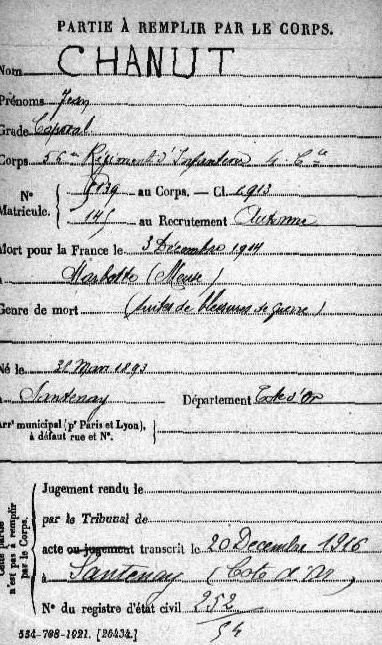 PARTIE À REMPLIR PAR LE CORPS.
Nom CHANUT
Prénoms Jean
Grade Caporal
Corps 56ème Régiment d'Infanterie 4e Cie
N° Matricule.
au Corps. — Cl. 1913
145 au Recrutement Autun
Mort pour la France le 3 Décembre 1914
à Marbotte (Meuse)
Genre de mort (suites de blessures de guerre)
Né le Mars 1893
à Santenay Département Côte d'Or
Arrt municipal (pr Paris et Lyon), à défaut rue et N°.
Cette partie n'est pas à remplir par le Corps.
Jugement rendu le
par le Tribunal de
acte ou jugement transcrit le 20 Décembre 1916
à Santenay (Côte d'Or)
N° du registre d'état civil 252
54
534-708-1921. [26434.]